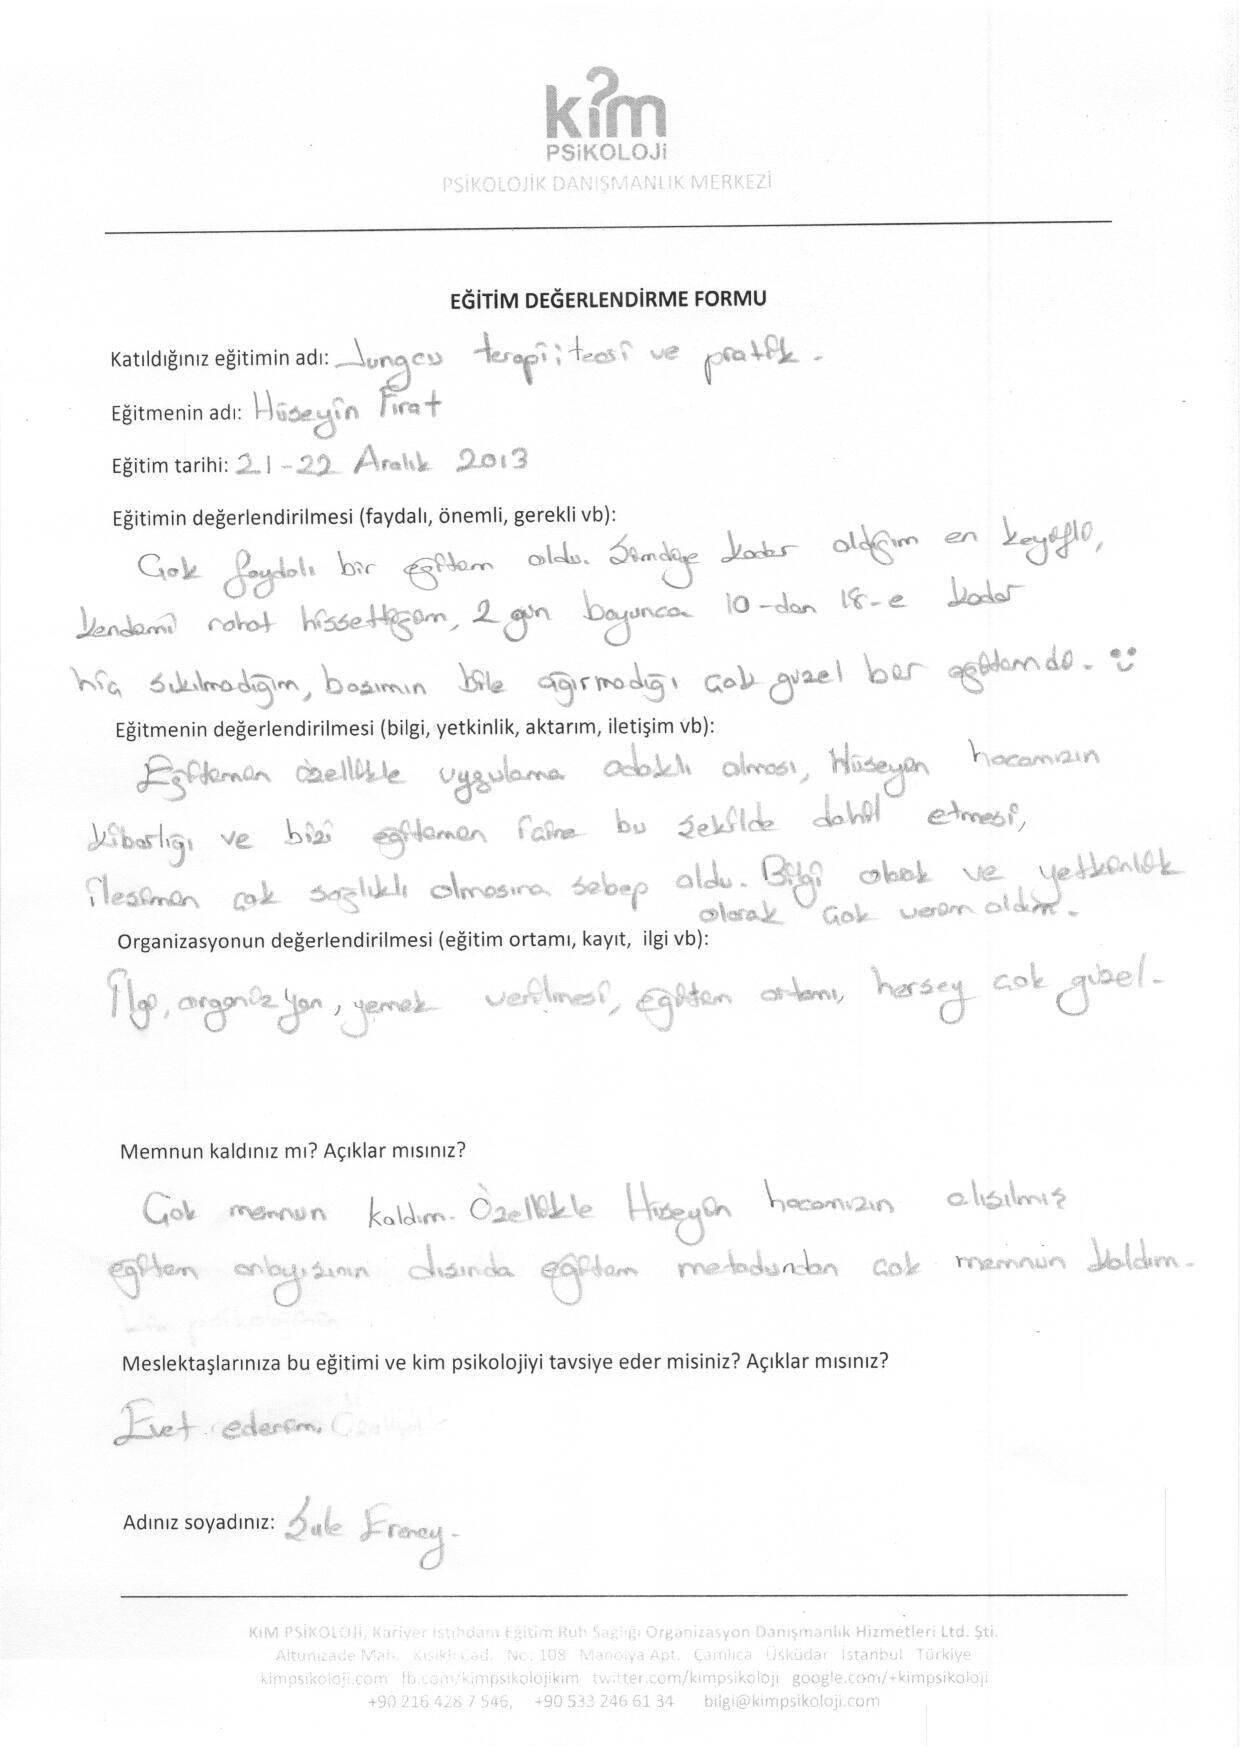 kim
PSİKOLOJİ
PSİKOLOJİK DANIŞMANLIK MERKEZİ
EĞİTİM DEĞERLENDİRME FORMU
Katıldığınız eğitimin adı: Jungcu terapi; teosi ve pratik.
Eğitmenin adı: Hüseyin Fırat
Eğitim tarihi: 21-22 Aralık 2013
Eğitimin değerlendirilmesi (faydalı, önemli, gerekli vb):
Çok faydalı bir eğitim oldu. Şimdiye kadar aldığım en keyifli,
kendimi rahat hissettiğim, 2 gün boyunca 10-dan 18-e kadar
hiç sıkılmadığım, başımın bile ağırmadığı çok güzel bir eğitimdi. ü
Eğitmenin değerlendirilmesi (bilgi, yetkinlik, aktarım, iletişim vb):
Eğitimin özellikle uygulama odaklı olması, Hüseyin hocamızın
kibarlığı ve bizi eğitimin içine bu şekilde dahil etmesi,
çok sağlıklı olmasına sebep oldu. Bilgi ve yetkinlik
olarak çok verim aldım.
Organizasyonun değerlendirilmesi (eğitim ortamı, kayıt, ilgi vb):
İlgi, organizyon, yemek verilmesi, eğitim ortamı, herşey çok güzel.
Memnun kaldınız mı? Açıklar mısınız?
Çok memnun kaldım. Özellikle Hüseyin hocamızın alışılmış
eğitim anlayışının dışında eğitim metodundan çok memnun kaldım.
Meslektaşlarınıza bu eğitimi ve kim psikolojiyi tavsiye eder misiniz? Açıklar mısınız?
Evet ederim.
Adınız soyadınız: Şule Erenay.
KİM PSİKOLOJİ, Kariyer İstihdam Eğitim Ruh Sağlığı Organizasyon Danışmanlık Hizmetleri Ltd. Şti.
Altunizade Mah. Kısıklı Cad. No: 108 Manolya Apt. Çamlıca Üsküdar İstanbul Türkiye
kimpsikoloji.com fb.com/kimpsikolojikim twitter.com/kimpsikoloji google.com/+kimpsikoloji
+90 216 428 7 546, +90 533 246 61 34 bilgi@kimpsikoloji.com